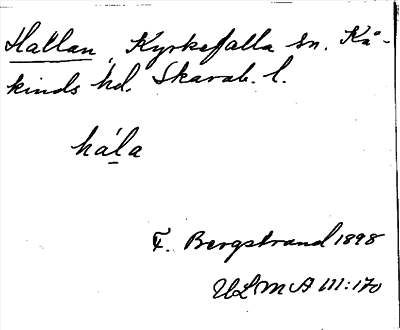 Hallan, Kyrkefalla sn. Kå-
kinds hd. Skarab. l.
hála
F. Bergstrand 1898
ULMA 111:170